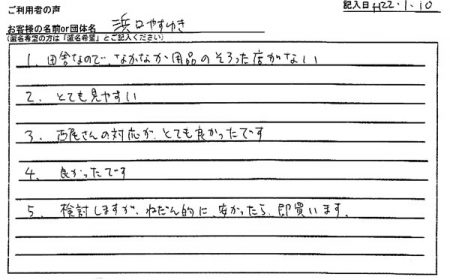 ご利用者の声
記入日 H22.1.10
お客様の名前or団体名 浜口やすゆき
(匿名希望の方は「匿名希望」とご記入ください)
1. 田舎なので、なかなか用品のそろった店がない
2. とても見やすい
3. 西尾さんの対応が、とても良かったです
4. 良かったです
5. 検討しますが、ねだん的に、安かったら、即買います。